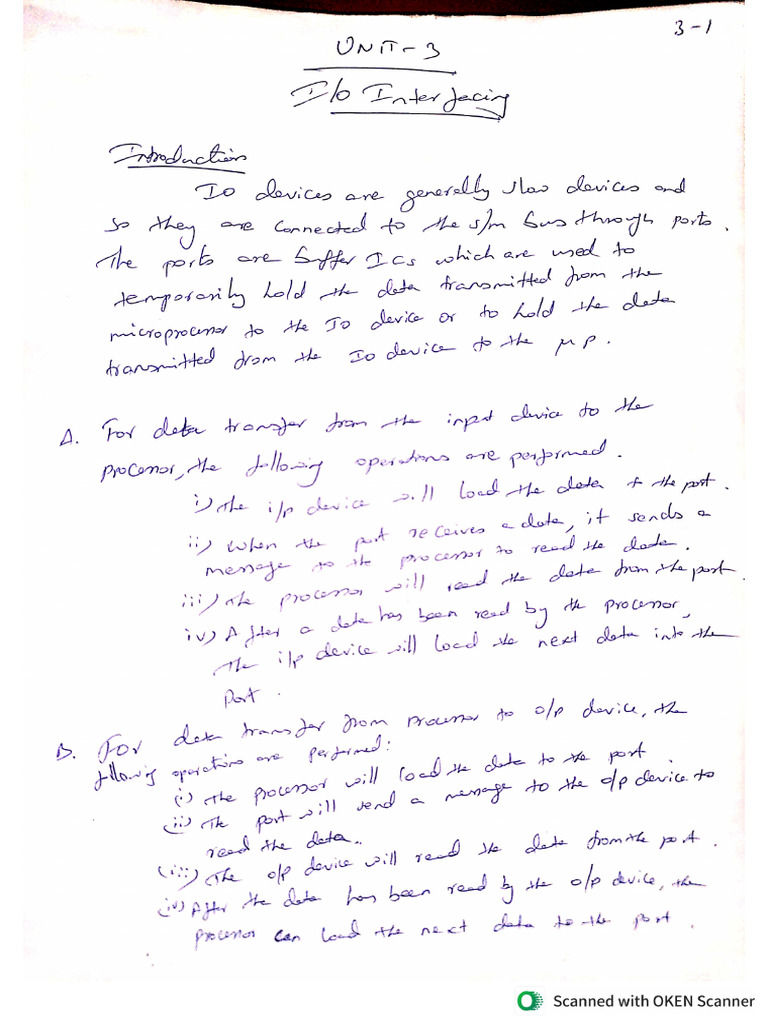 3-1
UNIT-3
I/O Interfacing
Introduction
IO devices are generally slow devices and
so they are connected to the s/m bus through ports.
The ports are buffer ICs which are used to
temporarily hold the data transmitted from the
microprocessor to the IO device or to hold the data
transmitted from the IO device to the μp.
A. For data transfer from the input device to the
processor, the following operations are performed.
i) The i/p device will load the data to the port.
ii) When the port receives a data, it sends a
message to the processor to read the data.
iii) The processor will read the data from the port.
iv) After a data has been read by the processor,
The i/p device will load the next data into the
port.
B. For data transfer from processor to o/p device, the
following operations are performed:
(i) The processor will load the data to the port.
(ii) The port will send a message to the o/p device to
read the data.
(iii) The o/p device will read the data from the port.
(iv) After the data has been read by the o/p device, the
processor can load the next data to the port.
Scanned with OKEN Scanner